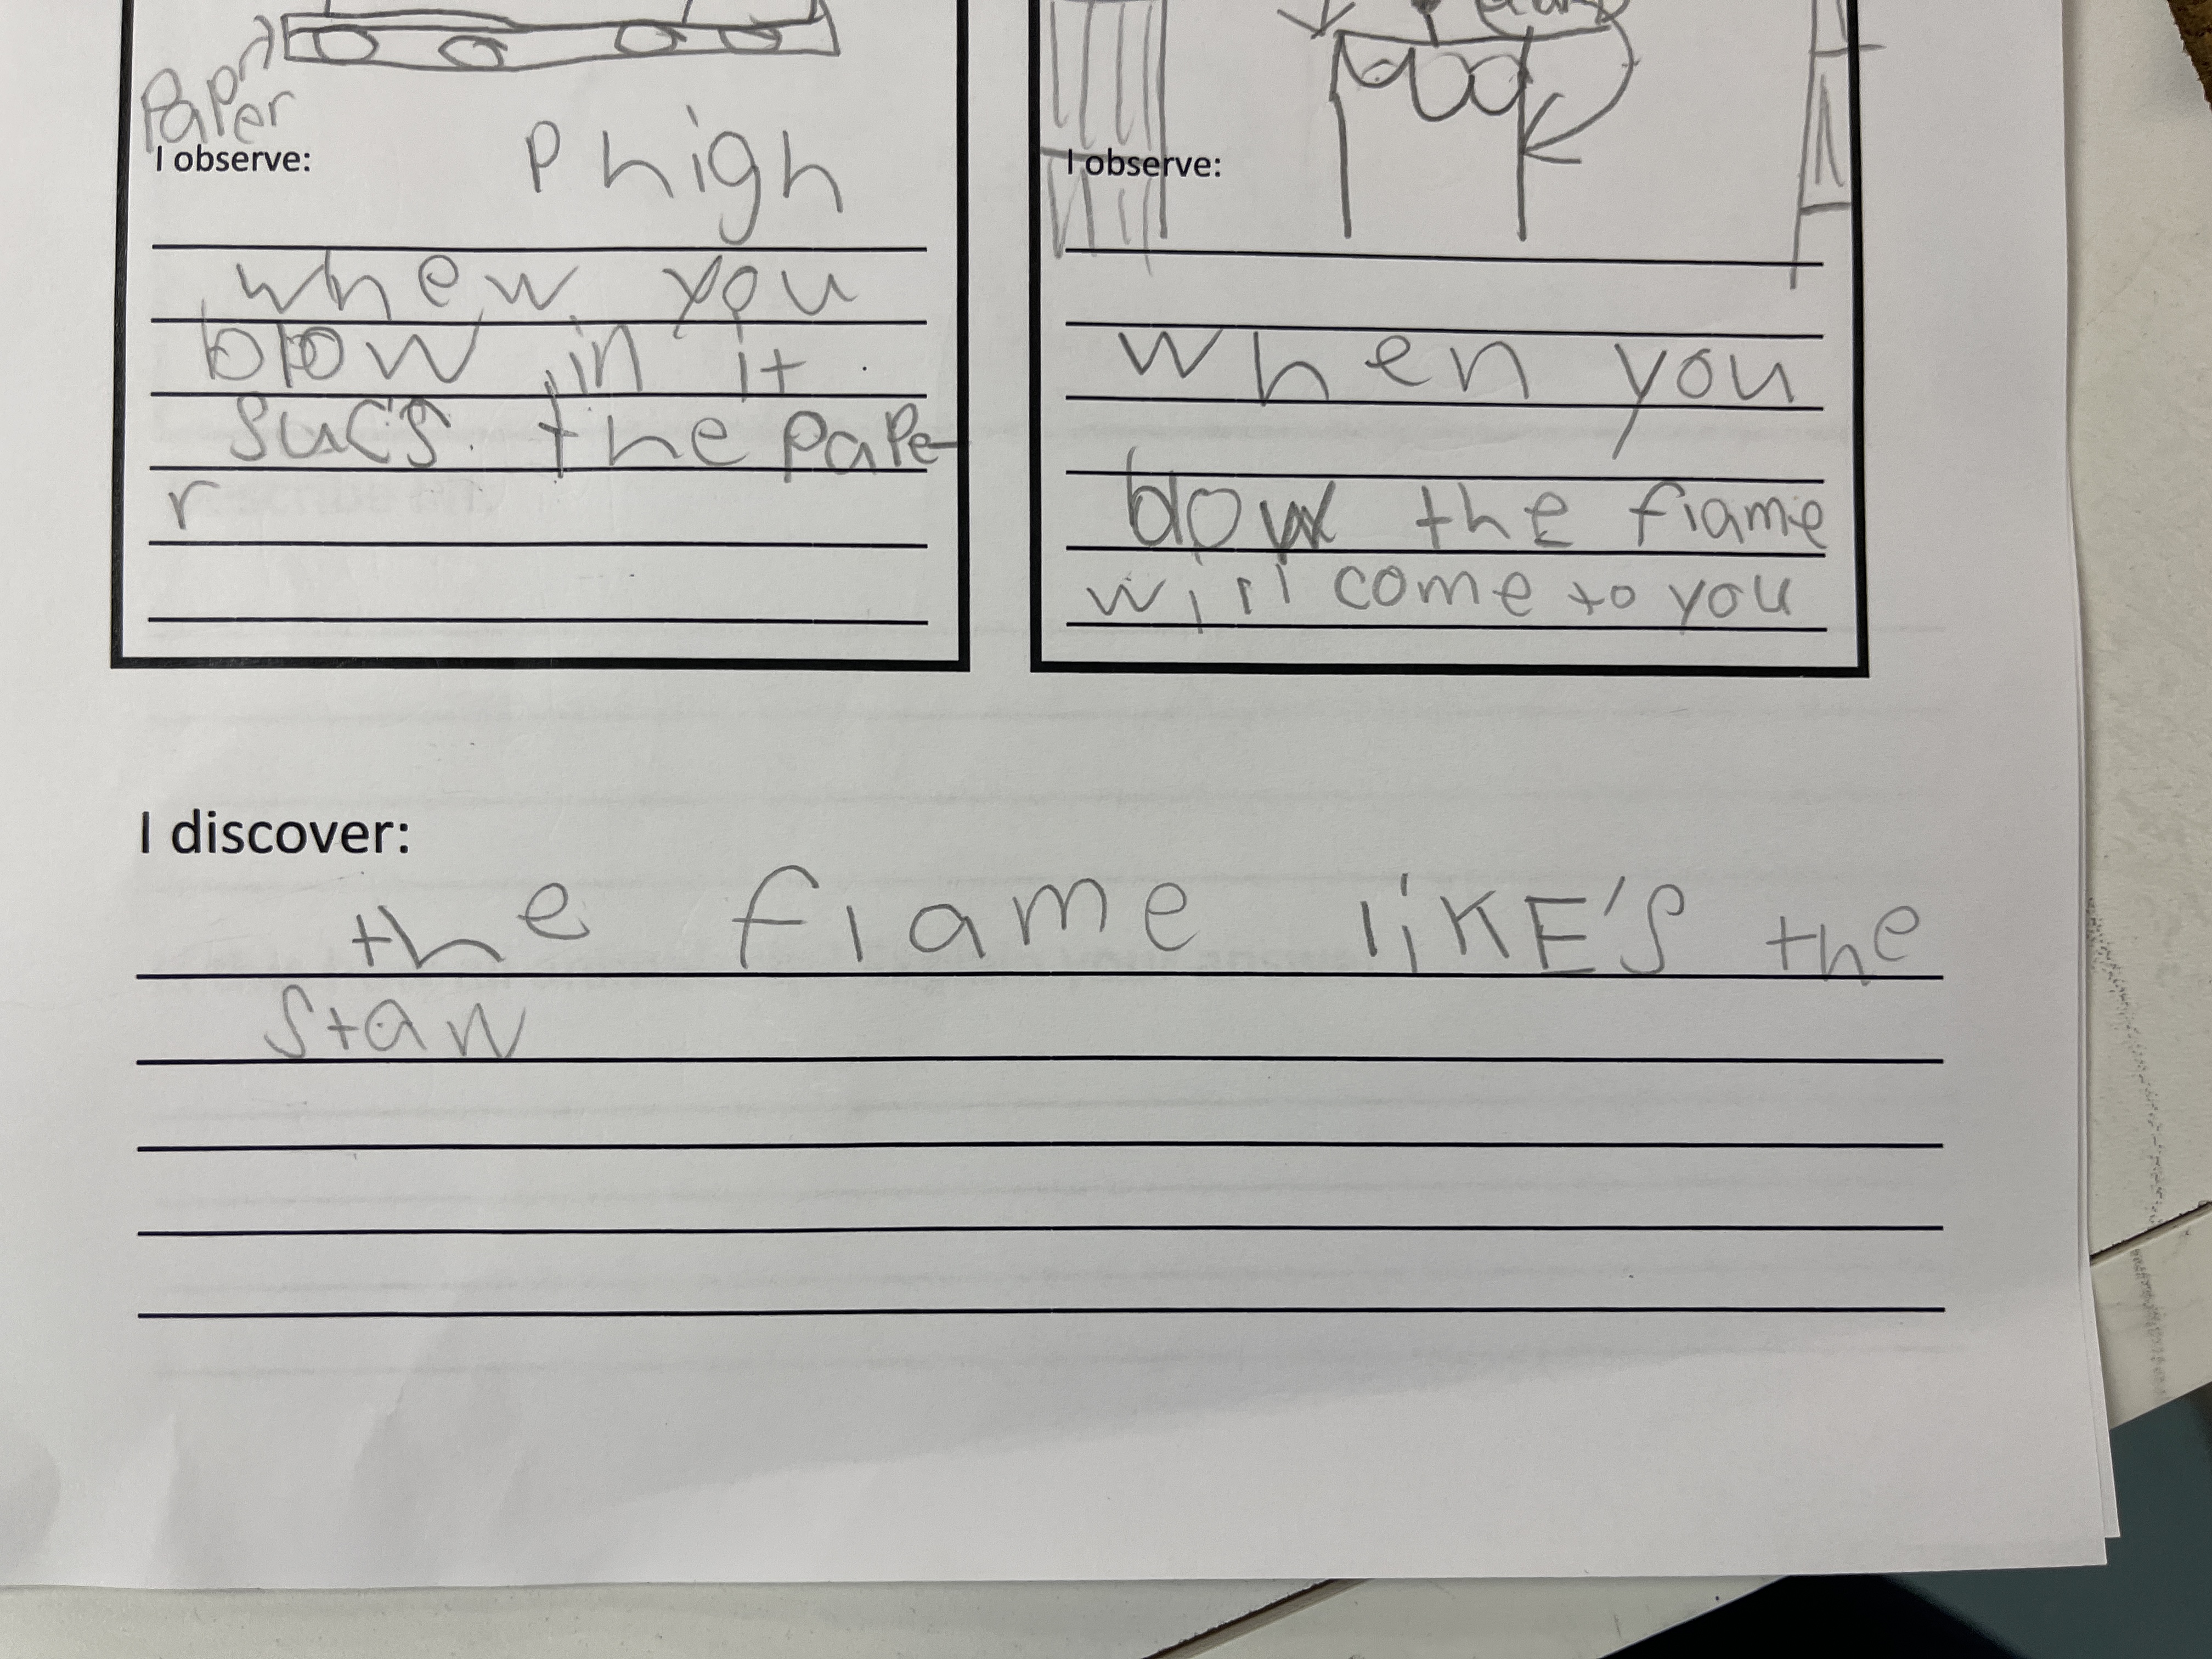 Paper
I observe:
P high
whew you
blow in it
suc's the pape
r
I observe:
when you
blow the flame
will come to you
I discover:
the flame likE's the
staw